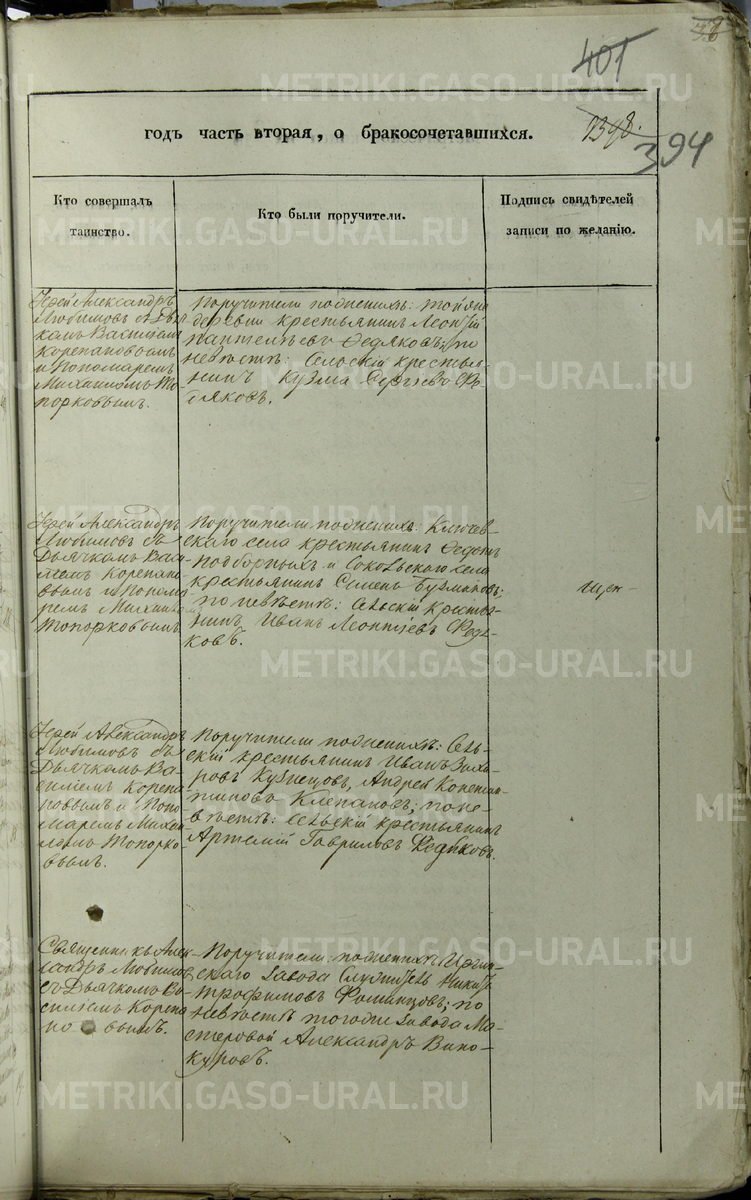 38
401
годъ часть вторая, о бракосочетавшихся.
2398.
394
Кто совершалъ
таинство.
Кто были поручители.
Подпись свидѣтелей
записи по желанію.
Іерей Александръ
Любимовъ съ Дья
комъ Василіем
Корепановымъ
и Пономаремъ
Михаиломъ То
порковымъ.
Поручители по женихѣ: той
деревни крестьянинъ Леонтій
Пантелѣевъ Ѳедяковъ; по
невѣстѣ: Сельскій крестья-
нинъ Кузма Сергѣевъ Фе
дяковъ.
Іерей Александръ
Любимовъ съ
Дьячкомъ Васи
ліемъ Корепано
вымъ и Понома
ремъ Михаиломъ
Топорковымъ
Поручители по женихѣ: Ключев-
скаго села крестьянинъ
Подборныхъ и Сокольскаго села
крестьянинъ Семенъ Бузмаковъ;
по невѣстѣ: Сельскій крестья-
нинъ Иванъ Леонтіевъ Федя-
ковъ.
Іерей Александръ
Любимовъ съ
Дьячкомъ Ва-
силіемъ Корепа
новымъ и Поно
маремъ Михаи
ломъ Топорко-
вымъ.
Поручители по женихѣ: Сель-
скій крестьянинъ Иванъ Заха-
ровъ Кузнецовъ, Андрей Констан-
тиновъ Клепаловъ; по не-
вѣстѣ: Сельскій крестьянинъ
Артемій Гавриловъ Федяковъ.
Священникъ Алек-
сандръ Любимовъ
съ Дьячкомъ Ва
силіемъ Корепа
новымъ.
Поручители по женихѣ: Иргин-
скаго завода Служитель Никита
Трофимовъ Романцовъ; по
невѣстѣ тогоже завода Ма-
стеровой Александръ Вино-
куровъ.
METRIKI.GASO-URAL.RU
METRIKI.GASO-URAL.RU
METRIKI.GASO-URAL.RU
METRIKI.GASO-URAL.RU
METRIKI.GASO-URAL.RU
METRIKI.GASO-URAL.RU
METRIKI.GASO-URAL.RU
METRIKI.GASO-URAL.RU